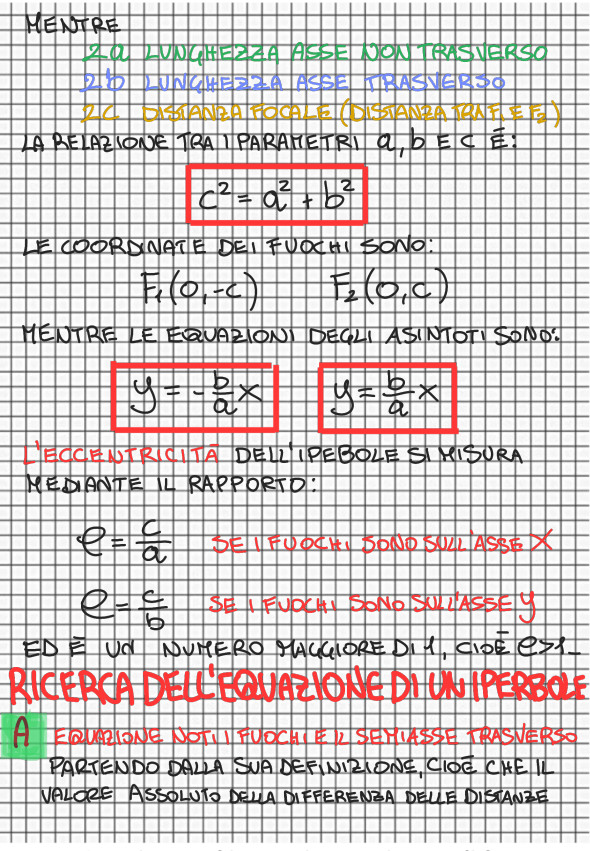 MENTRE
2a LUNGHEZZA ASSE NON TRASVERSO
2b LUNGHEZZA ASSE TRASVERSO
2C DISTANZA FOCALE (DISTANZA TRA F₁ E F₂)
LA RELAZIONE TRA I PARAMETRI a, b E C È:
c² = a² + b²
LE COORDINATE DEI FUOCHI SONO:
F₁(0,-c) F₂(0,c)
MENTRE LE EQUAZIONI DEGLI ASINTOTI SONO:
y = - b/a x y = b/a x
L'ECCENTRICITÀ DELL'IPEBOLE SI MISURA
MEDIANTE IL RAPPORTO:
e = c/a SE I FUOCHI SONO SULL'ASSE X
e = c/b SE I FUOCHI SONO SULL'ASSE y
ED È UN NUMERO MAGGIORE DI 1, CIOÈ e>1_
RICERCA DELL'EQUAZIONE DI UN IPERBOLE
A EQUAZIONE NOTI I FUOCHI E IL SEMIASSE TRASVERSO
PARTENDO DALLA SUA DEFINIZIONE, CIOÈ CHE IL
VALORE ASSOLUTO DELLA DIFFERENZA DELLE DISTANZE